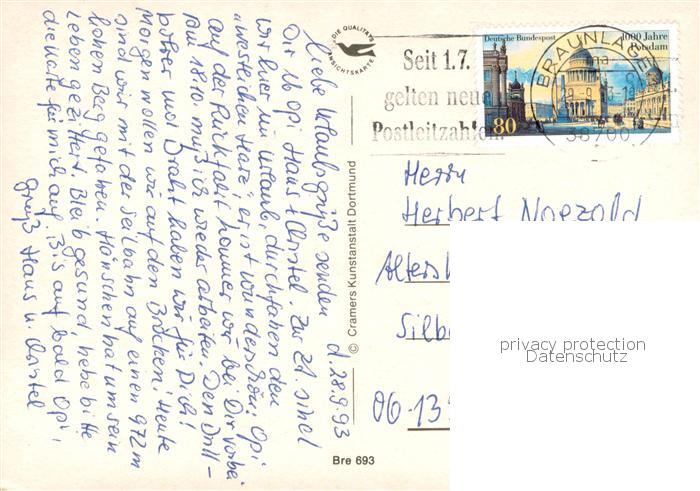 d. 28.9.93
Liebe Urlaubsgrüße senden
Dir lb Opi Hans + Christel. Zur Zt. sind
wir hier im Urlaub, durchfahren den
"westlichen Harz", er ist wunderschön. Opi
auf der Rückfahrt kommen wir bei Dir vorbei
Am 18.10. muß ich wieder arbeiten. Den Drill-
bohrer und Draht haben wir für Dich!
Morgen wollen wir auf den Brocken! Heute
sind wir mit der Seilbahn auf einen 972 m
hohen Berg gefahren. Hänschen hat um sein
Leben gezittert. Bleib gesund, hebe bitte
die Karte für mich auf. Bis auf bald Opi,
Gruß Hans u. Christel
DIE QUALITÄTS
ANSICHTSKARTE
© Cramers Kunstanstalt Dortmund
Bre 693
Seit 1.7.
gelten neue
Postleitzahlen
BRAUNLAGE
38700
Deutsche Bundespost
1000 Jahre
Potsdam
80
Herrn
Herbert Noezold
Alters
Silbe
06-13
privacy protection
Datenschutz